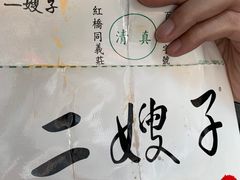 二嫂子
紅橋同義莊
清真
二嫂子